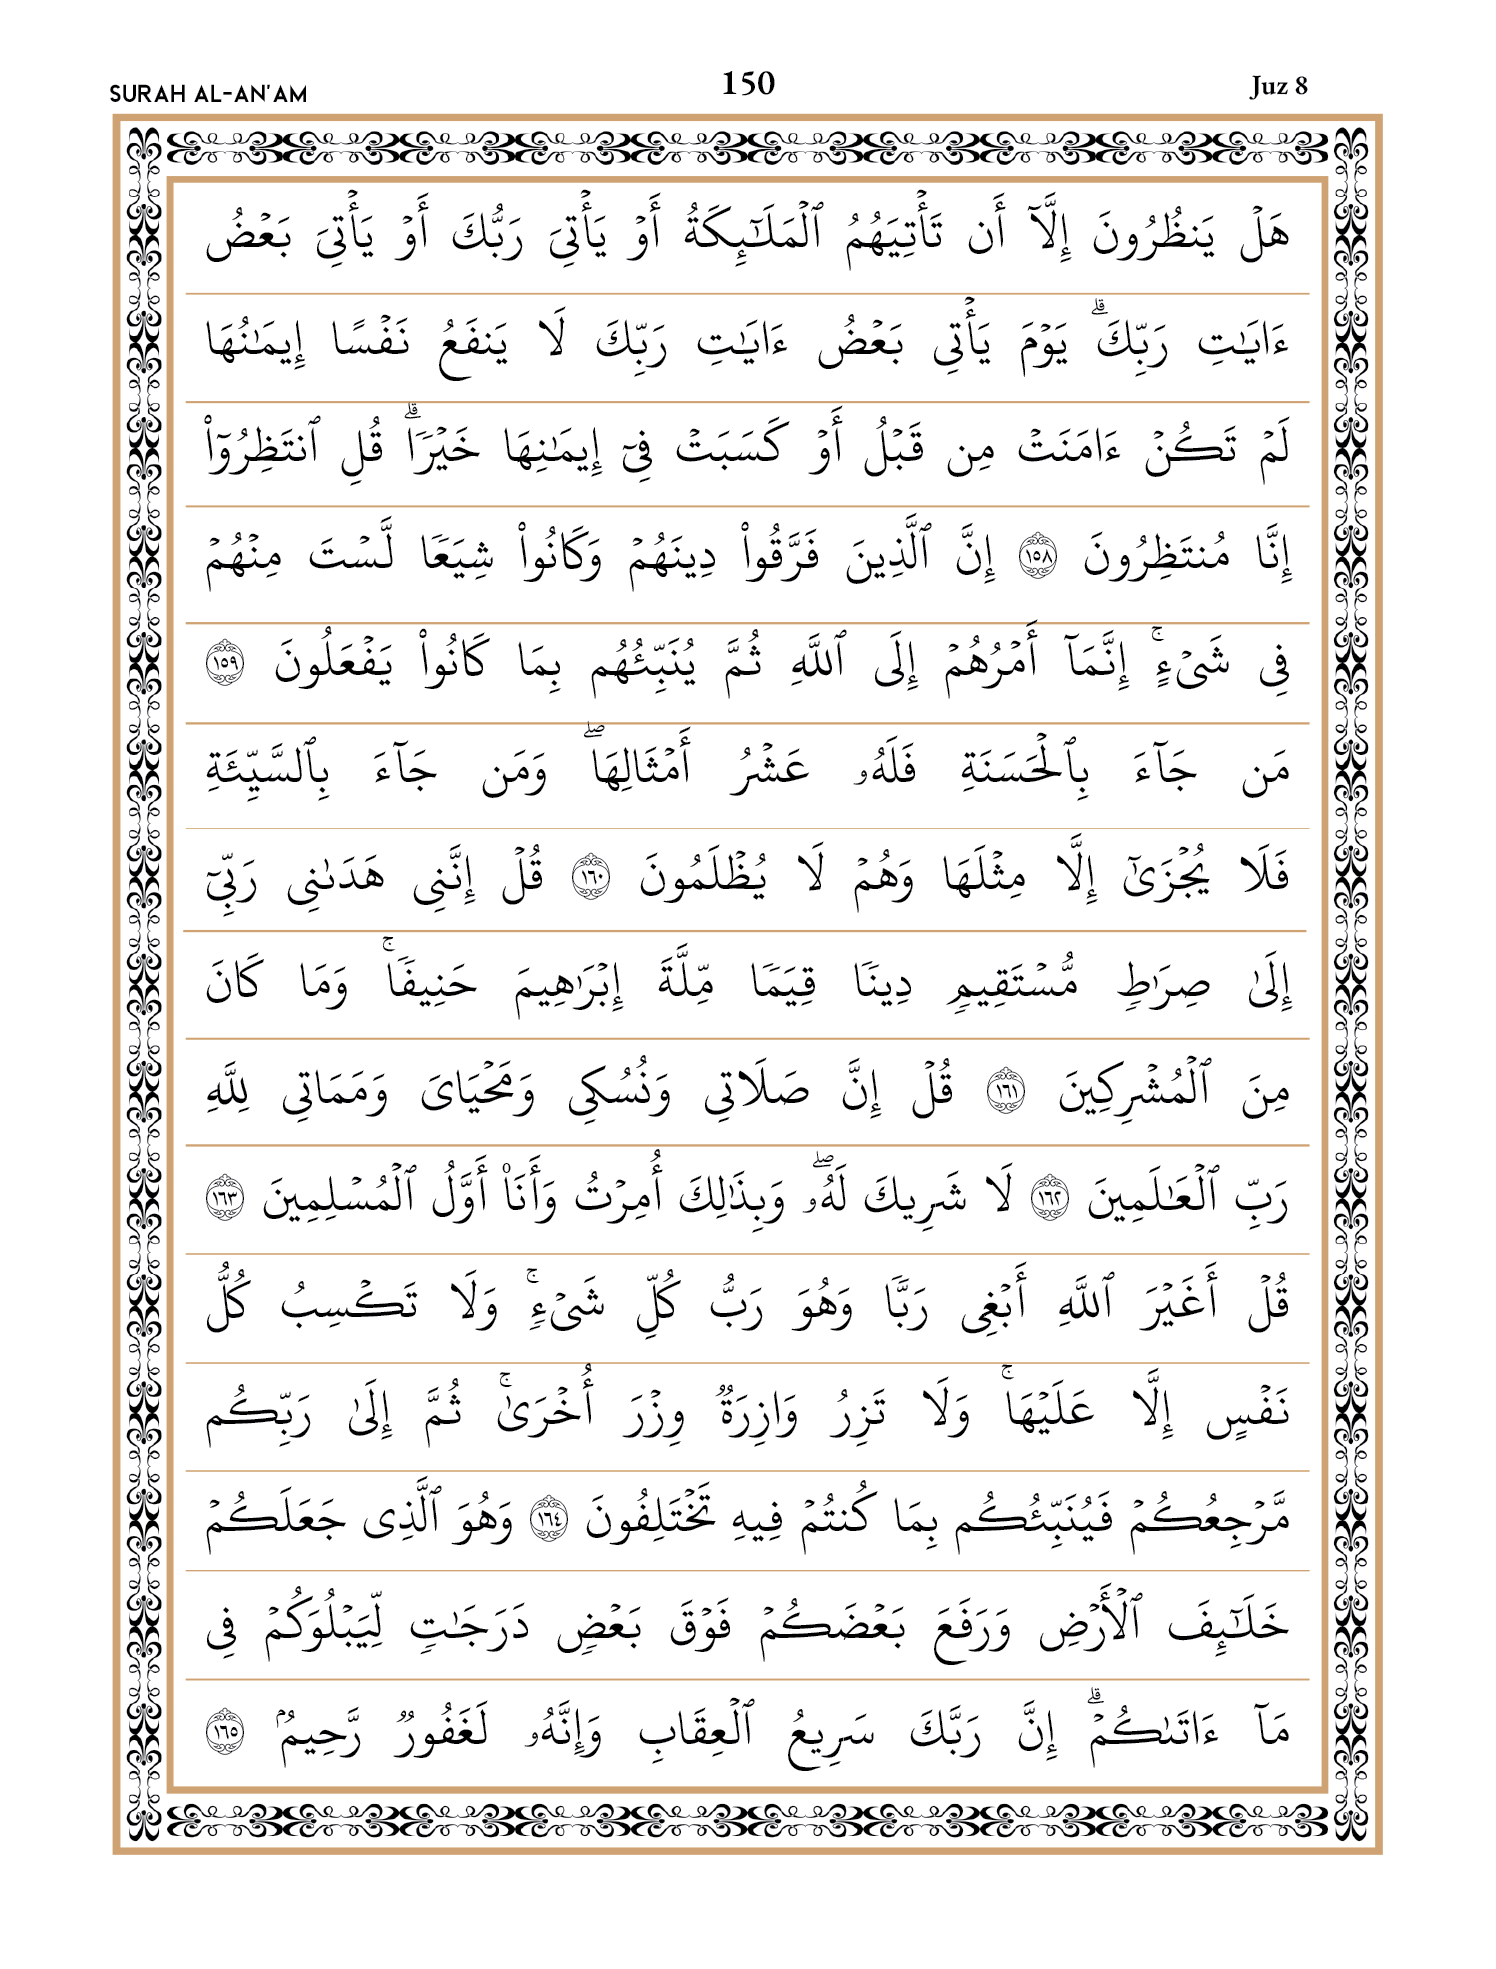 SURAH AL-AN'AM 150 Juz 8
هَلۡ يَنظُرُونَ إِلَّآ أَن تَأۡتِيَهُمُ ٱلۡمَلَٰٓئِكَةُ أَوۡ يَأۡتِيَ رَبُّكَ أَوۡ يَأۡتِيَ بَعۡضُ
ءَايَٰتِ رَبِّكَۗ يَوۡمَ يَأۡتِي بَعۡضُ ءَايَٰتِ رَبِّكَ لَا يَنفَعُ نَفۡسًا إِيمَٰنُهَا
لَمۡ تَكُنۡ ءَامَنَتۡ مِن قَبۡلُ أَوۡ كَسَبَتۡ فِيٓ إِيمَٰنِهَا خَيۡرٗاۗ قُلِ ٱنتَظِرُوٓاْ
إِنَّا مُنتَظِرُونَ ١٥٨ إِنَّ ٱلَّذِينَ فَرَّقُواْ دِينَهُمۡ وَكَانُواْ شِيَعٗا لَّسۡتَ مِنۡهُمۡ
فِي شَيۡءٍۚ إِنَّمَآ أَمۡرُهُمۡ إِلَى ٱللَّهِ ثُمَّ يُنَبِّئُهُم بِمَا كَانُواْ يَفۡعَلُونَ ١٥٩
مَن جَآءَ بِٱلۡحَسَنَةِ فَلَهُۥ عَشۡرُ أَمۡثَالِهَاۖ وَمَن جَآءَ بِٱلسَّيِّئَةِ
فَلَا يُجۡزَىٰٓ إِلَّا مِثۡلَهَا وَهُمۡ لَا يُظۡلَمُونَ ١٦٠ قُلۡ إِنَّنِي هَدَىٰنِي رَبِّيٓ
إِلَىٰ صِرَٰطٖ مُّسۡتَقِيمٖ دِينٗا قِيَمٗا مِّلَّةَ إِبۡرَٰهِيمَ حَنِيفٗاۚ وَمَا كَانَ
مِنَ ٱلۡمُشۡرِكِينَ ١٦١ قُلۡ إِنَّ صَلَاتِي وَنُسُكِي وَمَحۡيَايَ وَمَمَاتِي لِلَّهِ
رَبِّ ٱلۡعَٰلَمِينَ ١٦٢ لَا شَرِيكَ لَهُۥۖ وَبِذَٰلِكَ أُمِرۡتُ وَأَنَا۠ أَوَّلُ ٱلۡمُسۡلِمِينَ ١٦٣
قُلۡ أَغَيۡرَ ٱللَّهِ أَبۡغِي رَبّٗا وَهُوَ رَبُّ كُلِّ شَيۡءٖۚ وَلَا تَكۡسِبُ كُلُّ
نَفۡسٍ إِلَّا عَلَيۡهَاۚ وَلَا تَزِرُ وَازِرَةٞ وِزۡرَ أُخۡرَىٰۚ ثُمَّ إِلَىٰ رَبِّكُم
مَّرۡجِعُكُمۡ فَيُنَبِّئُكُم بِمَا كُنتُمۡ فِيهِ تَخۡتَلِفُونَ ١٦٤ وَهُوَ ٱلَّذِي جَعَلَكُمۡ
خَلَٰٓئِفَ ٱلۡأَرۡضِ وَرَفَعَ بَعۡضَكُمۡ فَوۡقَ بَعۡضٖ دَرَجَٰتٖ لِّيَبۡلُوَكُمۡ فِي
مَآ ءَاتَىٰكُمۡۗ إِنَّ رَبَّكَ سَرِيعُ ٱلۡعِقَابِ وَإِنَّهُۥ لَغَفُورٞ رَّحِيمُۢ ١٦٥